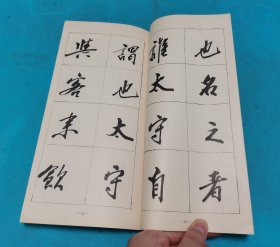 也名之者
雖太守自
謂也太守
與客來飲